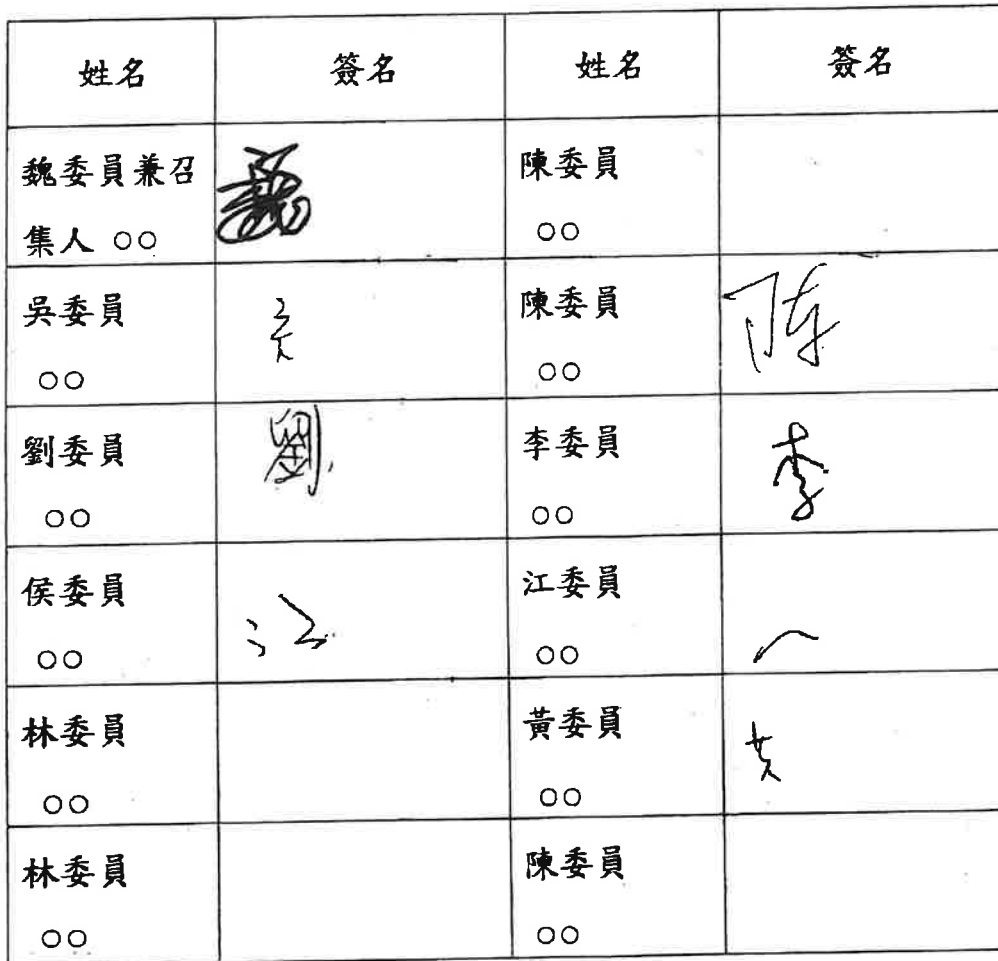 姓名 簽名 姓名 簽名
魏委員兼召 魏 陳委員
集人 ○○ ○○
吳委員 陳委員 陈
○○ ○○
劉委員 劉 李委員 李
○○ ○○
侯委員 江委員
○○ ○○
林委員 黃委員
○○ ○○
林委員 陳委員
○○ ○○